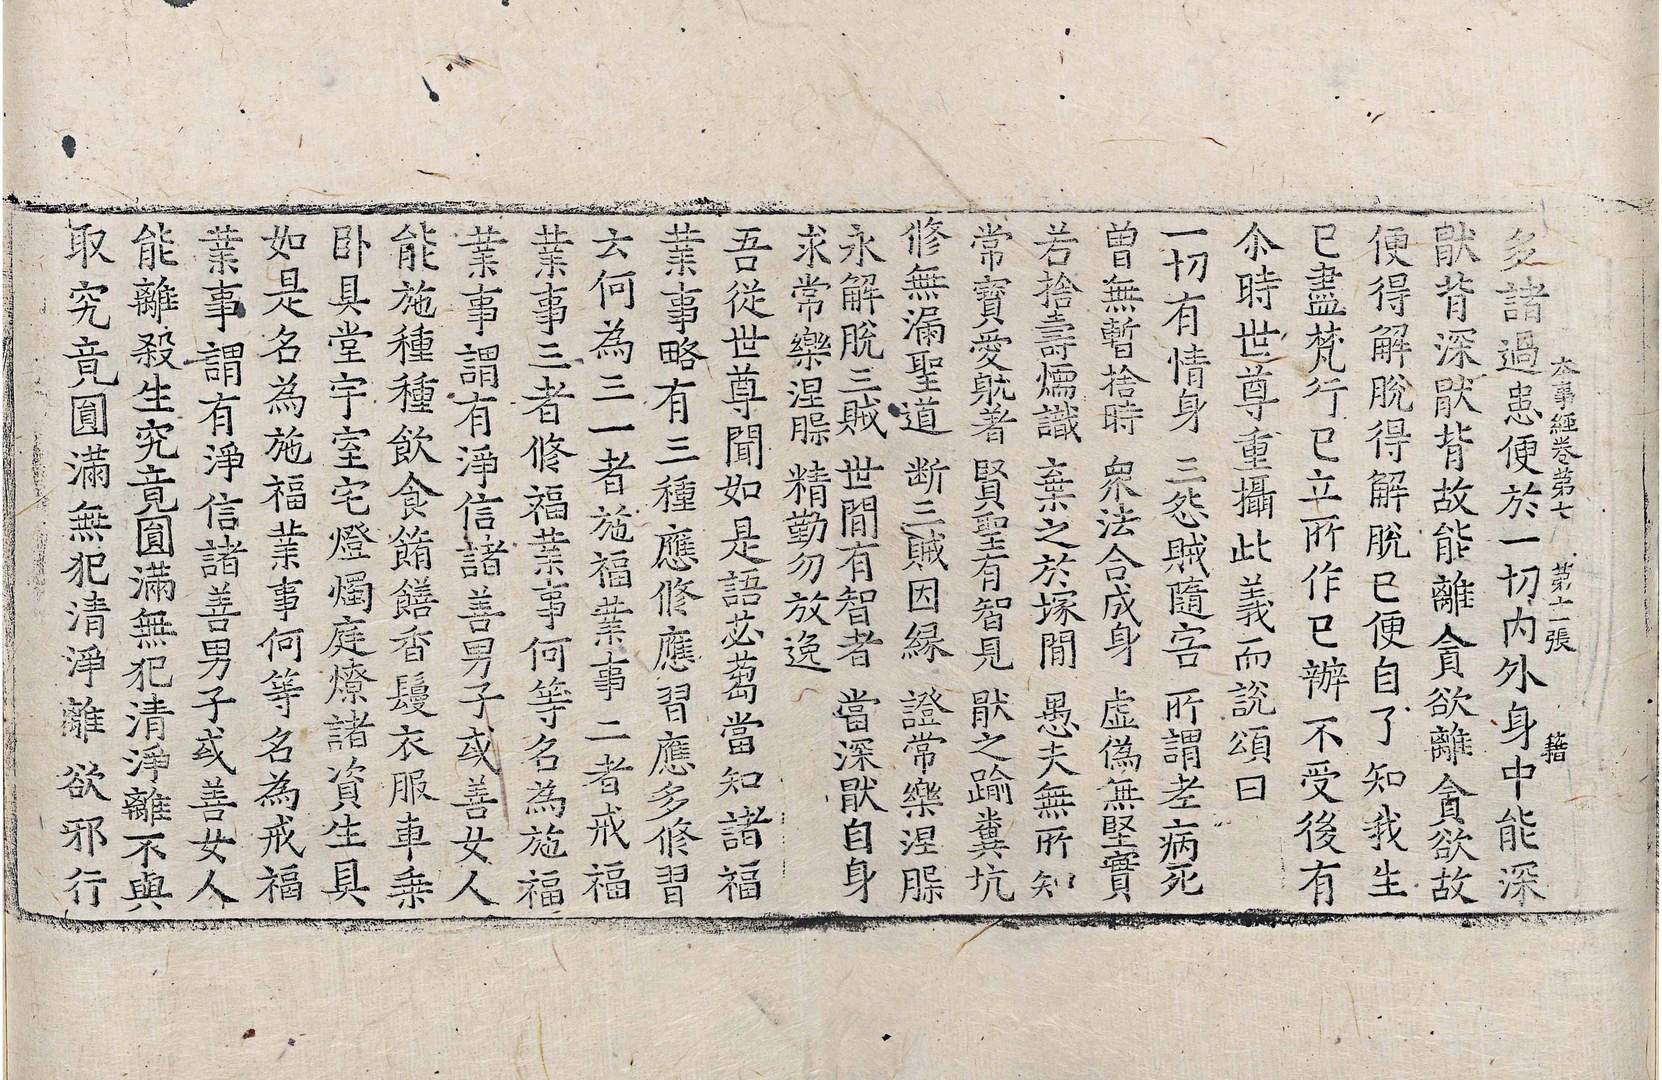 本事經卷第七 第十一張 籍
多諸過患便於一切内外身中能深
猒背深猒背故能離貪欲離貪欲故
便得解脫得解脫已便自了知我生
已盡梵行已立所作已辦不受後有
尒時世尊重攝此義而說頌曰
一切有情身 三怨賊隨害 所謂老病死
曾無暫捨時 衆法合成身 虛僞無堅實
若捨壽煖識 棄之於塚間 愚夫無所知
常寶愛躭著 賢聖有智見 猒之踰糞坑
修無漏聖道 断三賊因緣 證常樂涅槃
永解脫三賊 世間有智者 當深猒自身
求常樂涅槃 精勤勿放逸
吾從世尊聞如是語苾蒭當知諸福
業事略有三種應修應習應多修習
云何為三一者施福業事二者戒福
業事三者修福業事何等名為施福
業事謂有淨信諸善男子或善女人
能施種種飲食餚饍香鬘衣服車乘
卧具堂宇室宅燈燭庭燎諸資生具
如是名為施福業事何等名為戒福
業事謂有淨信諸善男子或善女人
能離殺生究竟圓滿無犯清淨離不與
取究竟圓滿無犯清淨離欲邪行